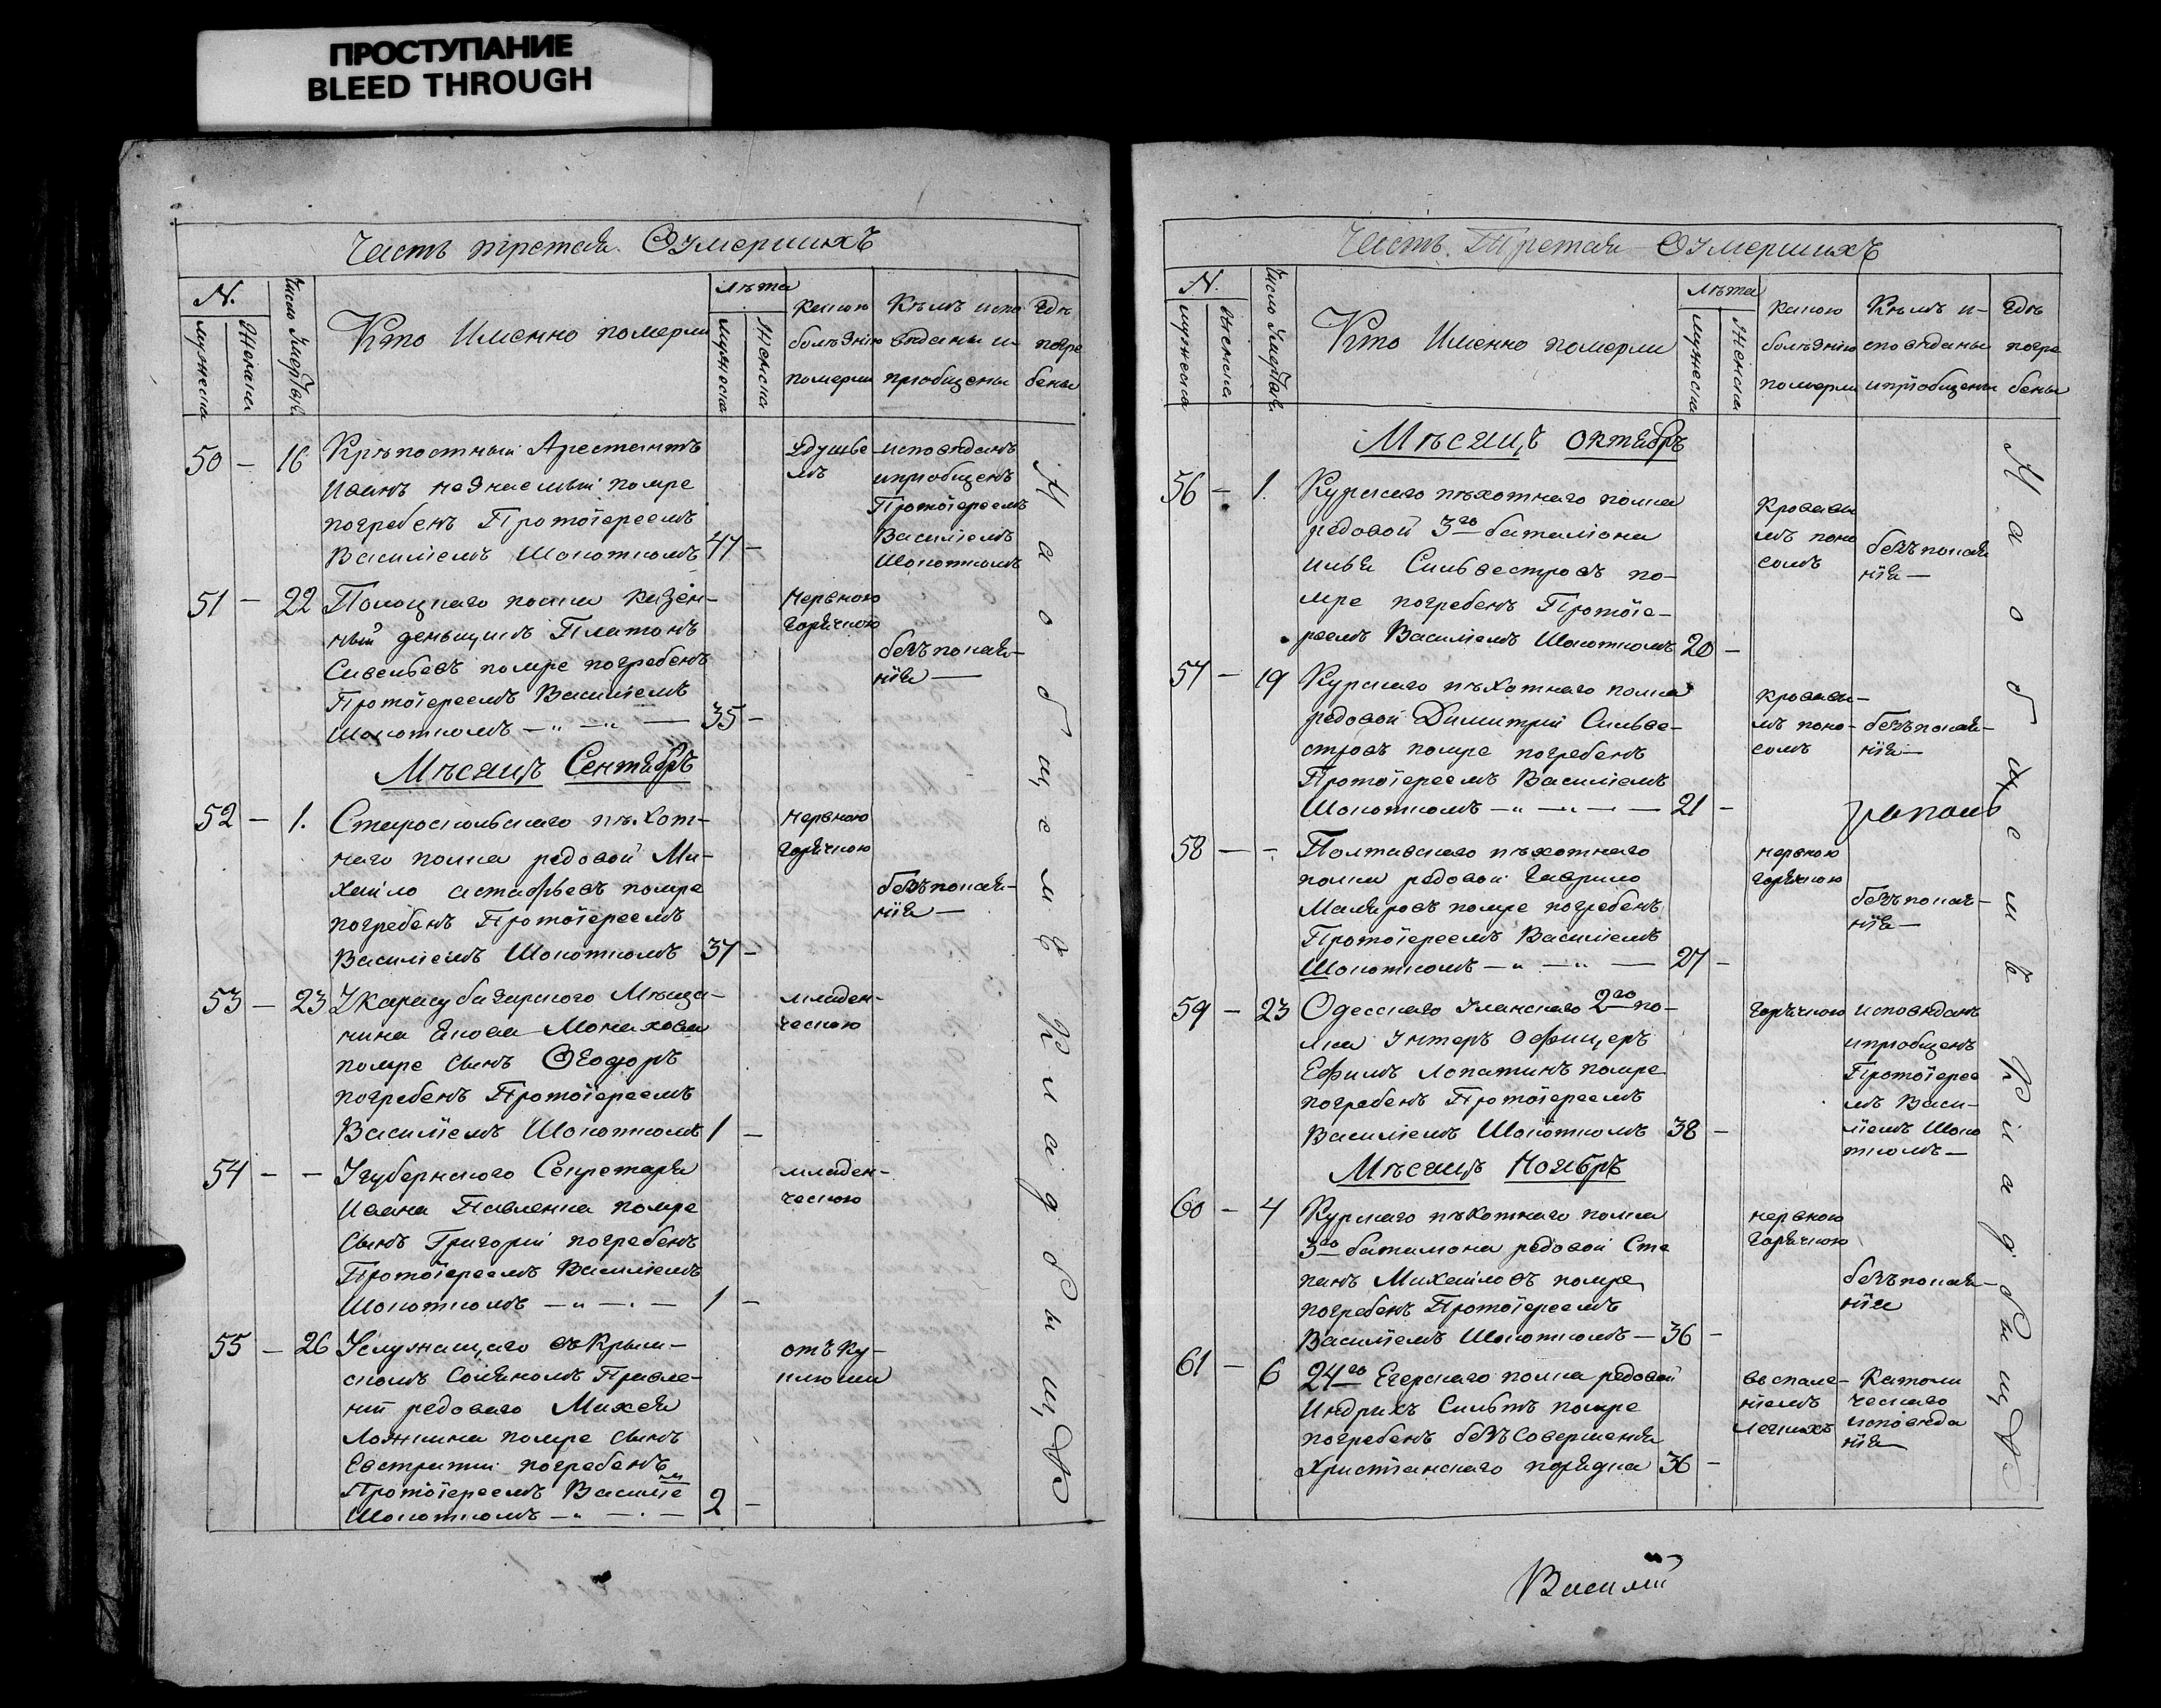 ПРОСТУПАНИЕ
BLEED THROUGH
Часть третая Оумершихъ
N.
мужеска
женска
Число Умертвія
Кто Именно померли
лѣта
мужеска
женска
какою
болѣзнію
померли
Кѣмъ испо
вѣданы и
пріобщены
Гдѣ
погре
бены
50 — 16 Крѣпостный Арестантъ
Иванъ незнаемый помре
погребенъ Протоіереемъ
Василіемъ Шокоткомъ 47 —
Удушье
мъ
исповѣданъ
ипріобщенъ
Протоіереемъ
Василіемъ
Шокоткомъ
51 — 22 Полоцкаго полка казен-
ный деньщикъ Платонъ
Савельевъ помре погребенъ
Протоіереемъ Василіемъ
Шокоткомъ — „ — „ — 35 —
Нервною
горячкою
безъ покая-
нія —
Мѣсяцъ Сентябрь
52 — 1. Старооскольскаго пѣхот-
наго полка редовой Ми-
хайло Астафьевъ помре
погребенъ Протоіереемъ
Василіемъ Шокоткомъ 37 —
нервною
горячкою
безъ покая-
нія —
53 — 23 Укарасубазарского Мѣща-
нина Якова Монахова
помре сынъ Ѳеодоръ
погребенъ Протоіереемъ
Василіемъ Шокоткомъ 1 —
младен-
ческою
54 — — Угубернского Секретаря
Ивана Павленка помре
сынъ Григорій погребенъ
Протоіереемъ Василіемъ
Шокоткомъ — „ — . — 1 —
младен-
ческою
55 — 26 Услужащаго въ Крым-
скомъ Соляномъ Правле-
ніи редоваго Михея
Ложкина помре сынъ
Евстратій погребенъ
Протоіереемъ Василіе мъ
Шокоткомъ — „ — . — 2 —
отъ ку-
На общемъ Кладбищѣ
Часть Третая Оумершихъ
N.
мужеска
женска
Число Умертвія
Кто Именно померли
лѣта
мужеска
женска
какою
болѣзнію
померли
Кѣмъ и-
сповѣданы
ипріобщены
Гдѣ
погре
бены
Мѣсяцъ Октябрь
56 — 1. Курскаго пѣхотнаго полка
редовой 3го баталіона
илья Сильвестровъ по-
мре погребенъ Протоіе-
реемъ Василіемъ Шокоткомъ 20 —
Кровавы
мъ поно
сомъ
безъ покая
нія —
57 — 19 Курскаго пѣхотнаго полка
редовой Димитрій Сильве-
стровъ помре погребенъ
Протоіереемъ Василіемъ
Шокоткомъ — „ — „ — . — 21 —
кровавы-
мъ поно-
сомъ
безъ покая-
нія —
58 — — Полтавскаго пѣхотнаго
полка редовой Гаврило
Макаровъ помре погребенъ
Протоіереемъ Василіемъ
Шокоткомъ — „ — „ — 27 —
нервною
горячкою
безъ покая-
нія —
59 — 23 Одесскаго Уланскаго 2го по-
лка Унтеръ Офицеръ
Ефимъ Лопатинъ помре
погребенъ Протоіереемъ
Василіемъ Шокоткомъ 38 —
горячкою
исповѣданъ
ипріобщенъ
Протоіерее
мъ Васи-
ліемъ Шоко
ткомъ —
Мѣсяцъ Ноябрь
60 — 4 Курскаго пѣхотнаго полка
3го баталіона редовой Сте
панъ Михайловъ помре
погребенъ Протоіереемъ
Василіемъ Шокоткомъ — 36 —
нервною
горячкою
безъ покая-
нія
61 — 6 24го Егерскаго полка редовой
Индрихъ помре
погребенъ безъ Совершенія
Христіанскаго порядка 36 —
воспале-
ніемъ
легкихъ
Католи
ческаго
исповѣда
нія
На общемъ Кладбищѣ
Василій